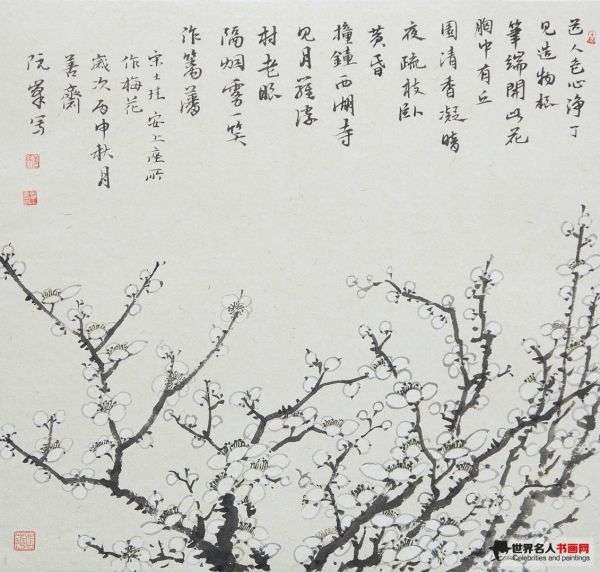 道人色心净了
见造物根
筆端開此花
胸中有丘
園清香凝暗
夜疏枝卧
黄昏
撞鐘西湖寺
见月羅浮
村老眼
隔烟雾一笑
作籬藩
宋士珪安上座所
作梅花
歲次丙申秋月
善齋
阮写
世界名人书画网
Celebrities and paintings